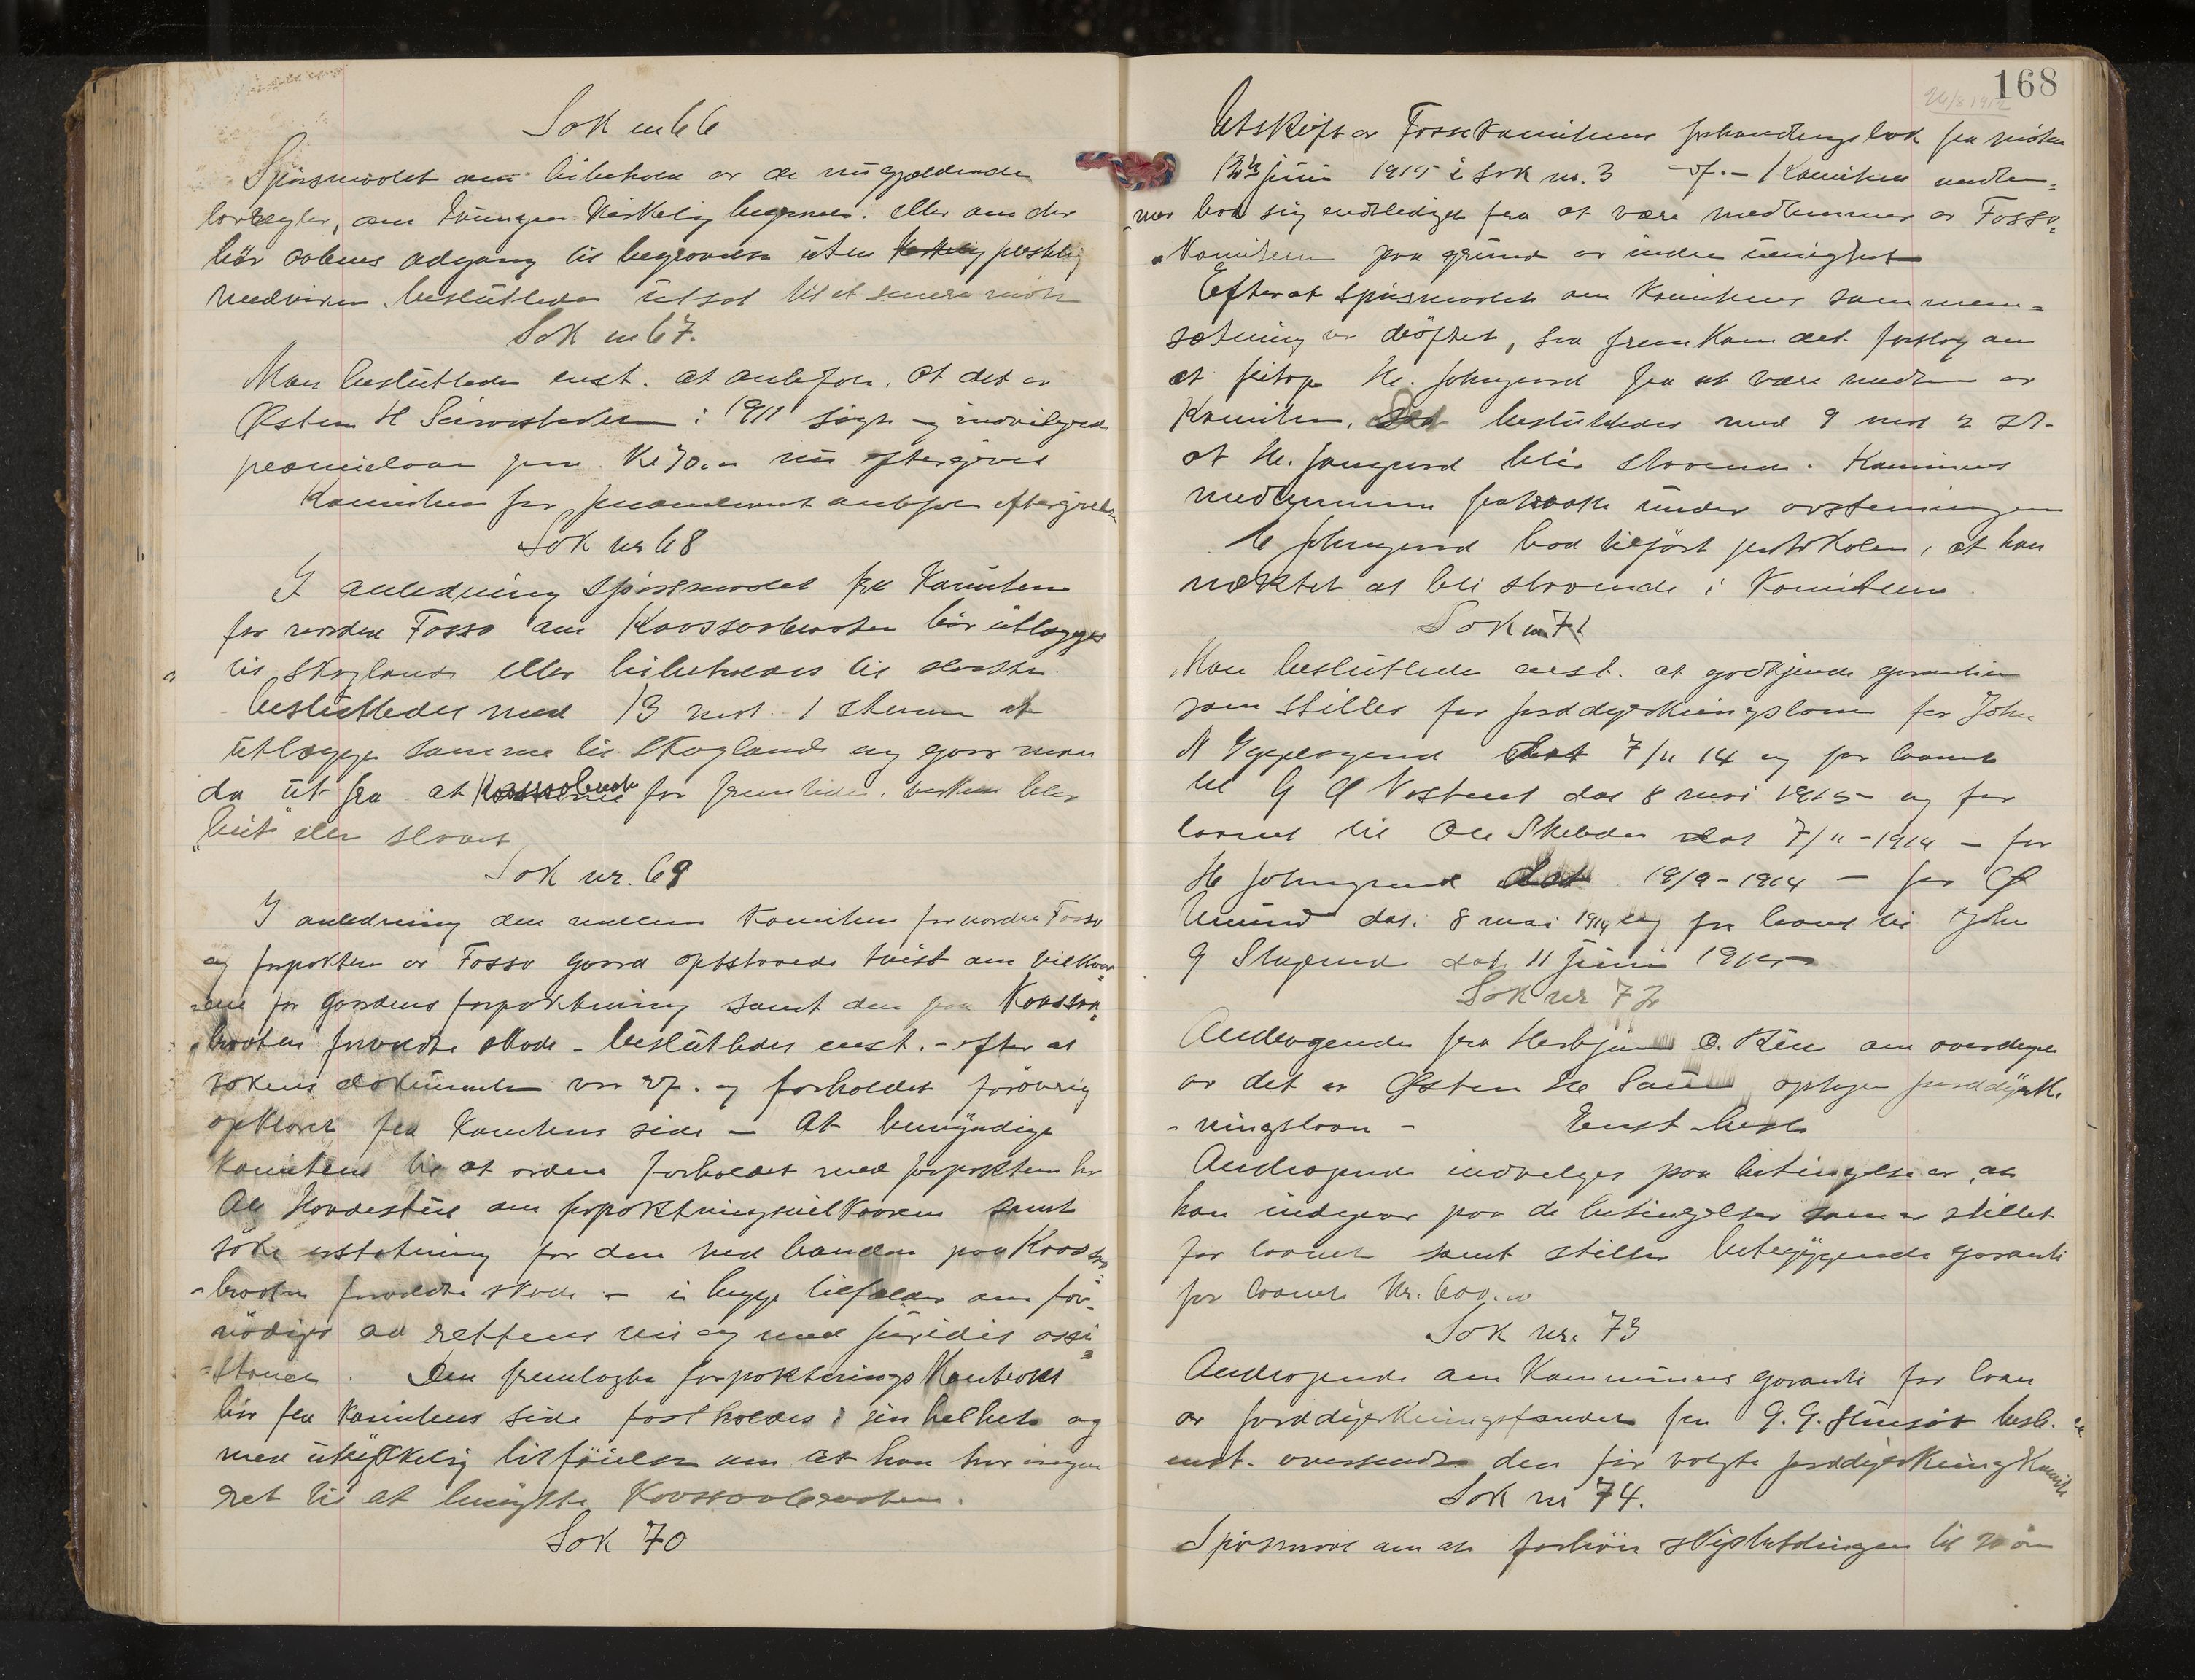 Sak nr 66
Spørsmaalet om bibehold av de nugjældende
lovregler, om tvungen kirkelig begravelse. eller om der
bør aabnes adgang til begravelse uten kirkelig prestelig
medvirken besluttedes utsat til et senere møte
Sak nr 67.
Man besluttedes enst. at anbefale, at det av
Østen H i 1911 søgte og indvilgede
præmielaan Kr 70.00 nu eftergives
Komiteen for anbefaler eftergivelse
Sak nr 68
I anledning spørsmaalet fra Komiteen
for nordre Fosso om Kaassaabraaten bør utlægges
til Skogland eller bibeholdes til slaatte.
besluttedes med 13 mot 1 stemme at
utlægge samme til Skogland og gaar man
da ut fra at Kaassaabraaten for fremtiden hverken blir
"beit" eller slaaet
Sak nr. 69
I anledning den mellem Komiteen for nordre Fosso
og forpakteren av Fosso gaard opstaaede tvist om vilkaar-
ene for gaardens forpaktning samt den paa Kaassaa-
braaten forvoldte skade - besluttedes enst. - efter at
sakens dokumenter var ref. og forholdet forøvrig
opklaret fra Komiteens side - At bemyndige
Komiteen til at ordne forholdet med forpakteren hr
Ole om forpaktningsvilkaarene samt
søke erstatning for den ved paa Kaassaa-
braaten forvoldte skade - i begge tilfælder om for-
nødiges ad rettens vei og med juridis assi-
stance. Den fremlagte forpaktnings Kontrakt
bør fra Komiteens side fastholdes i sin helhet og
med uttrykkelig tilføielse om at han har ingen
ret til at benytte Kaassaabraaten.
Sak 70
168
Utskrift av Fossokomiteens forhandlingsbok fra møtet
12te juni 1915 i sak nr. 3 ref. - Komiteens medlem-
mer bad sig entlediget fra at være medlemmer av Fosso-
Komiteen paa grund av indre uenighet
Efterat Spørsmaalet om Komiteens sammen-
sætning var drøftet, saa fremkom det forslag om
at fritage H. Johngaard fra at være medlem av
Komiteen. Det besluttedes med 9 mot 2 st.
at H. Jongaard blir staaende. Komiteens
medlemmer fratraate under avstemningen
H Johngaard bad tilført protokolen, at han
nægtet at bli staaende i Komiteen.
Sak nr 71
Man besluttede enst. at godkjende garantien
som stilles for jorddyrkningslaan for John
N dat 7/11 14 og for laanet
til G dat 8 mai 1915 og for
laanet til Ole dat 7/11-1914 - for
H Johngaard dat 19/9-1914 - for
dat. 8 mai 1914 og for laanet til John
G dat 11 juni 1915
Sak nr 72
Andragende fra Herbjørn O. om overdragelse
av det av Østen H optagne jorddyrk-
ningslaan - Enst besl.
Andragendet indvilges paa betingelse av, at
han indgaar paa de betingelser som er stillet
for laanet samt stiller betryggende garanti
for laanet Kr. 600.00
Sak nr. 73
Andragende om Kommunens garanti for laan
av jorddyrkningsfondet fra G. G. besl.
enst. oversendt den før valgte jorddyrkningskomite
Sak nr 74.
Spørsmaal om at forhøie til 20 øre